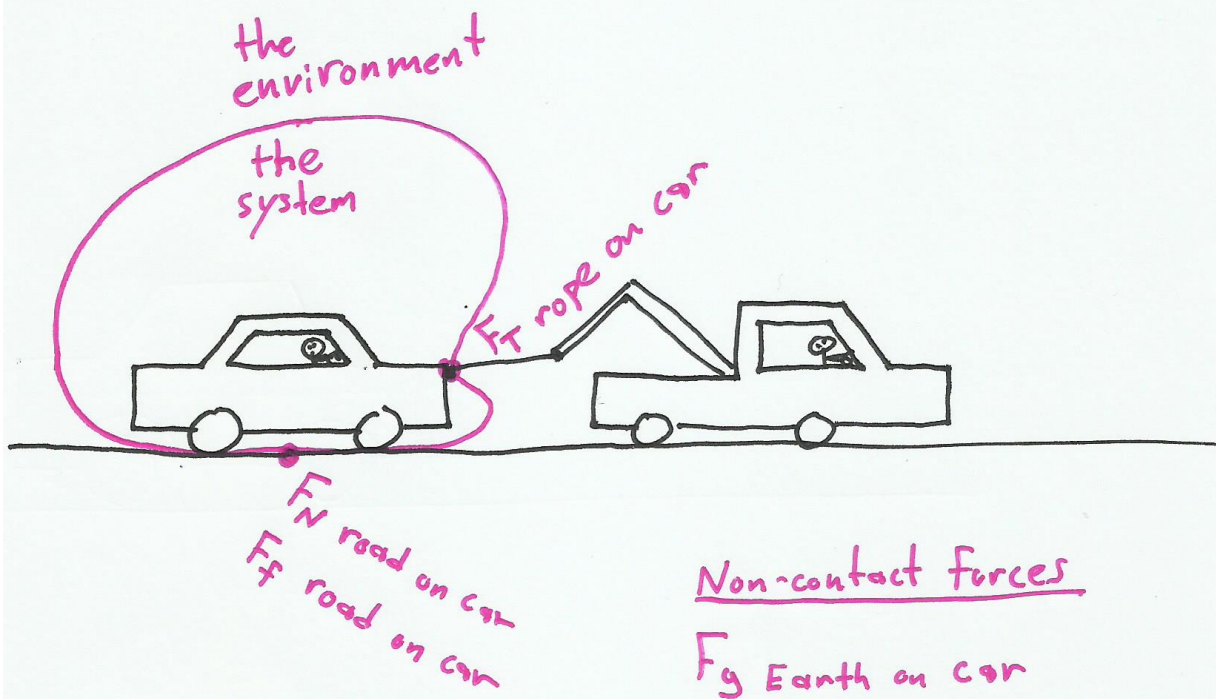 the
environment
the
system
F_T rope on car
F_N road on car
F_f road on car
Non-contact forces
F_g Earth on car